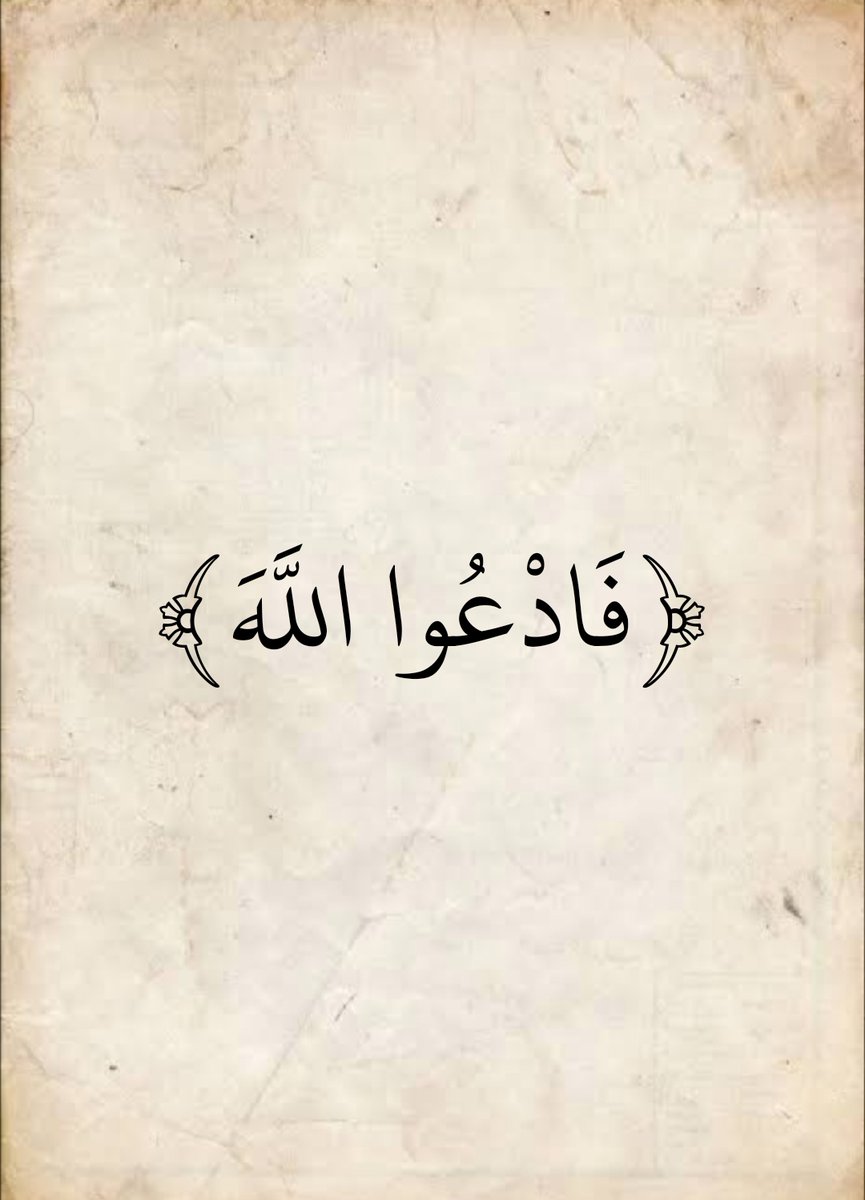 ﴿ فَادْعُوا اللَّهَ ﴾